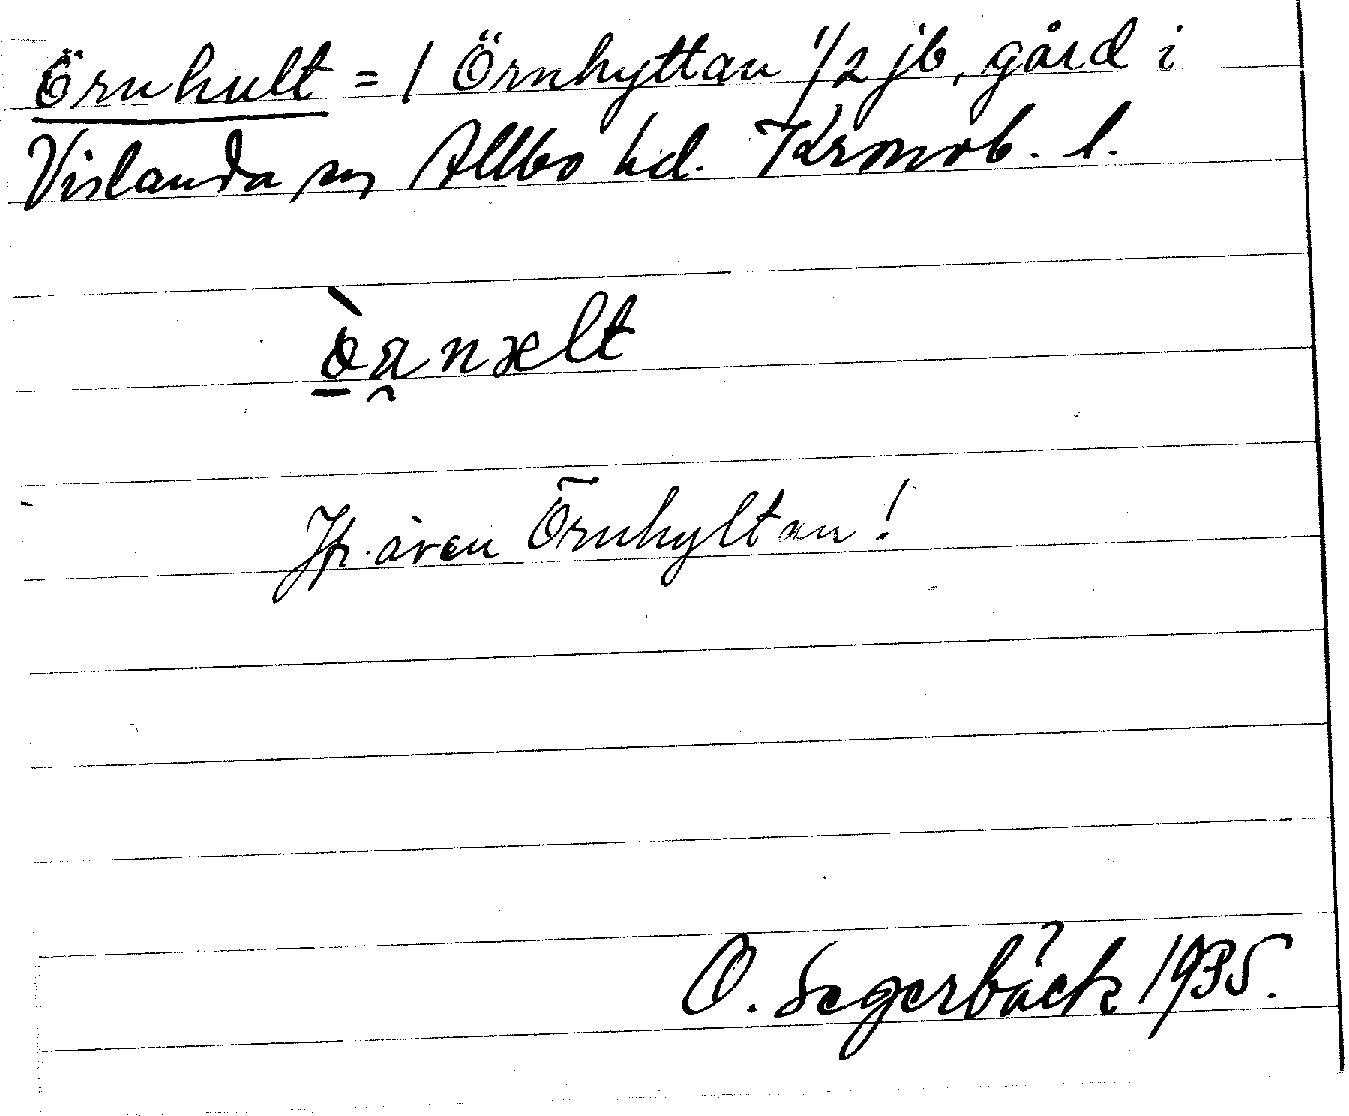 Örnhult = / Örnhyttan 1/2 jb, gård i
Vislanda sn Allbo hd. Kronob. l.
Jfr. även Örnhyltan!
O. Segerbäck 1935.